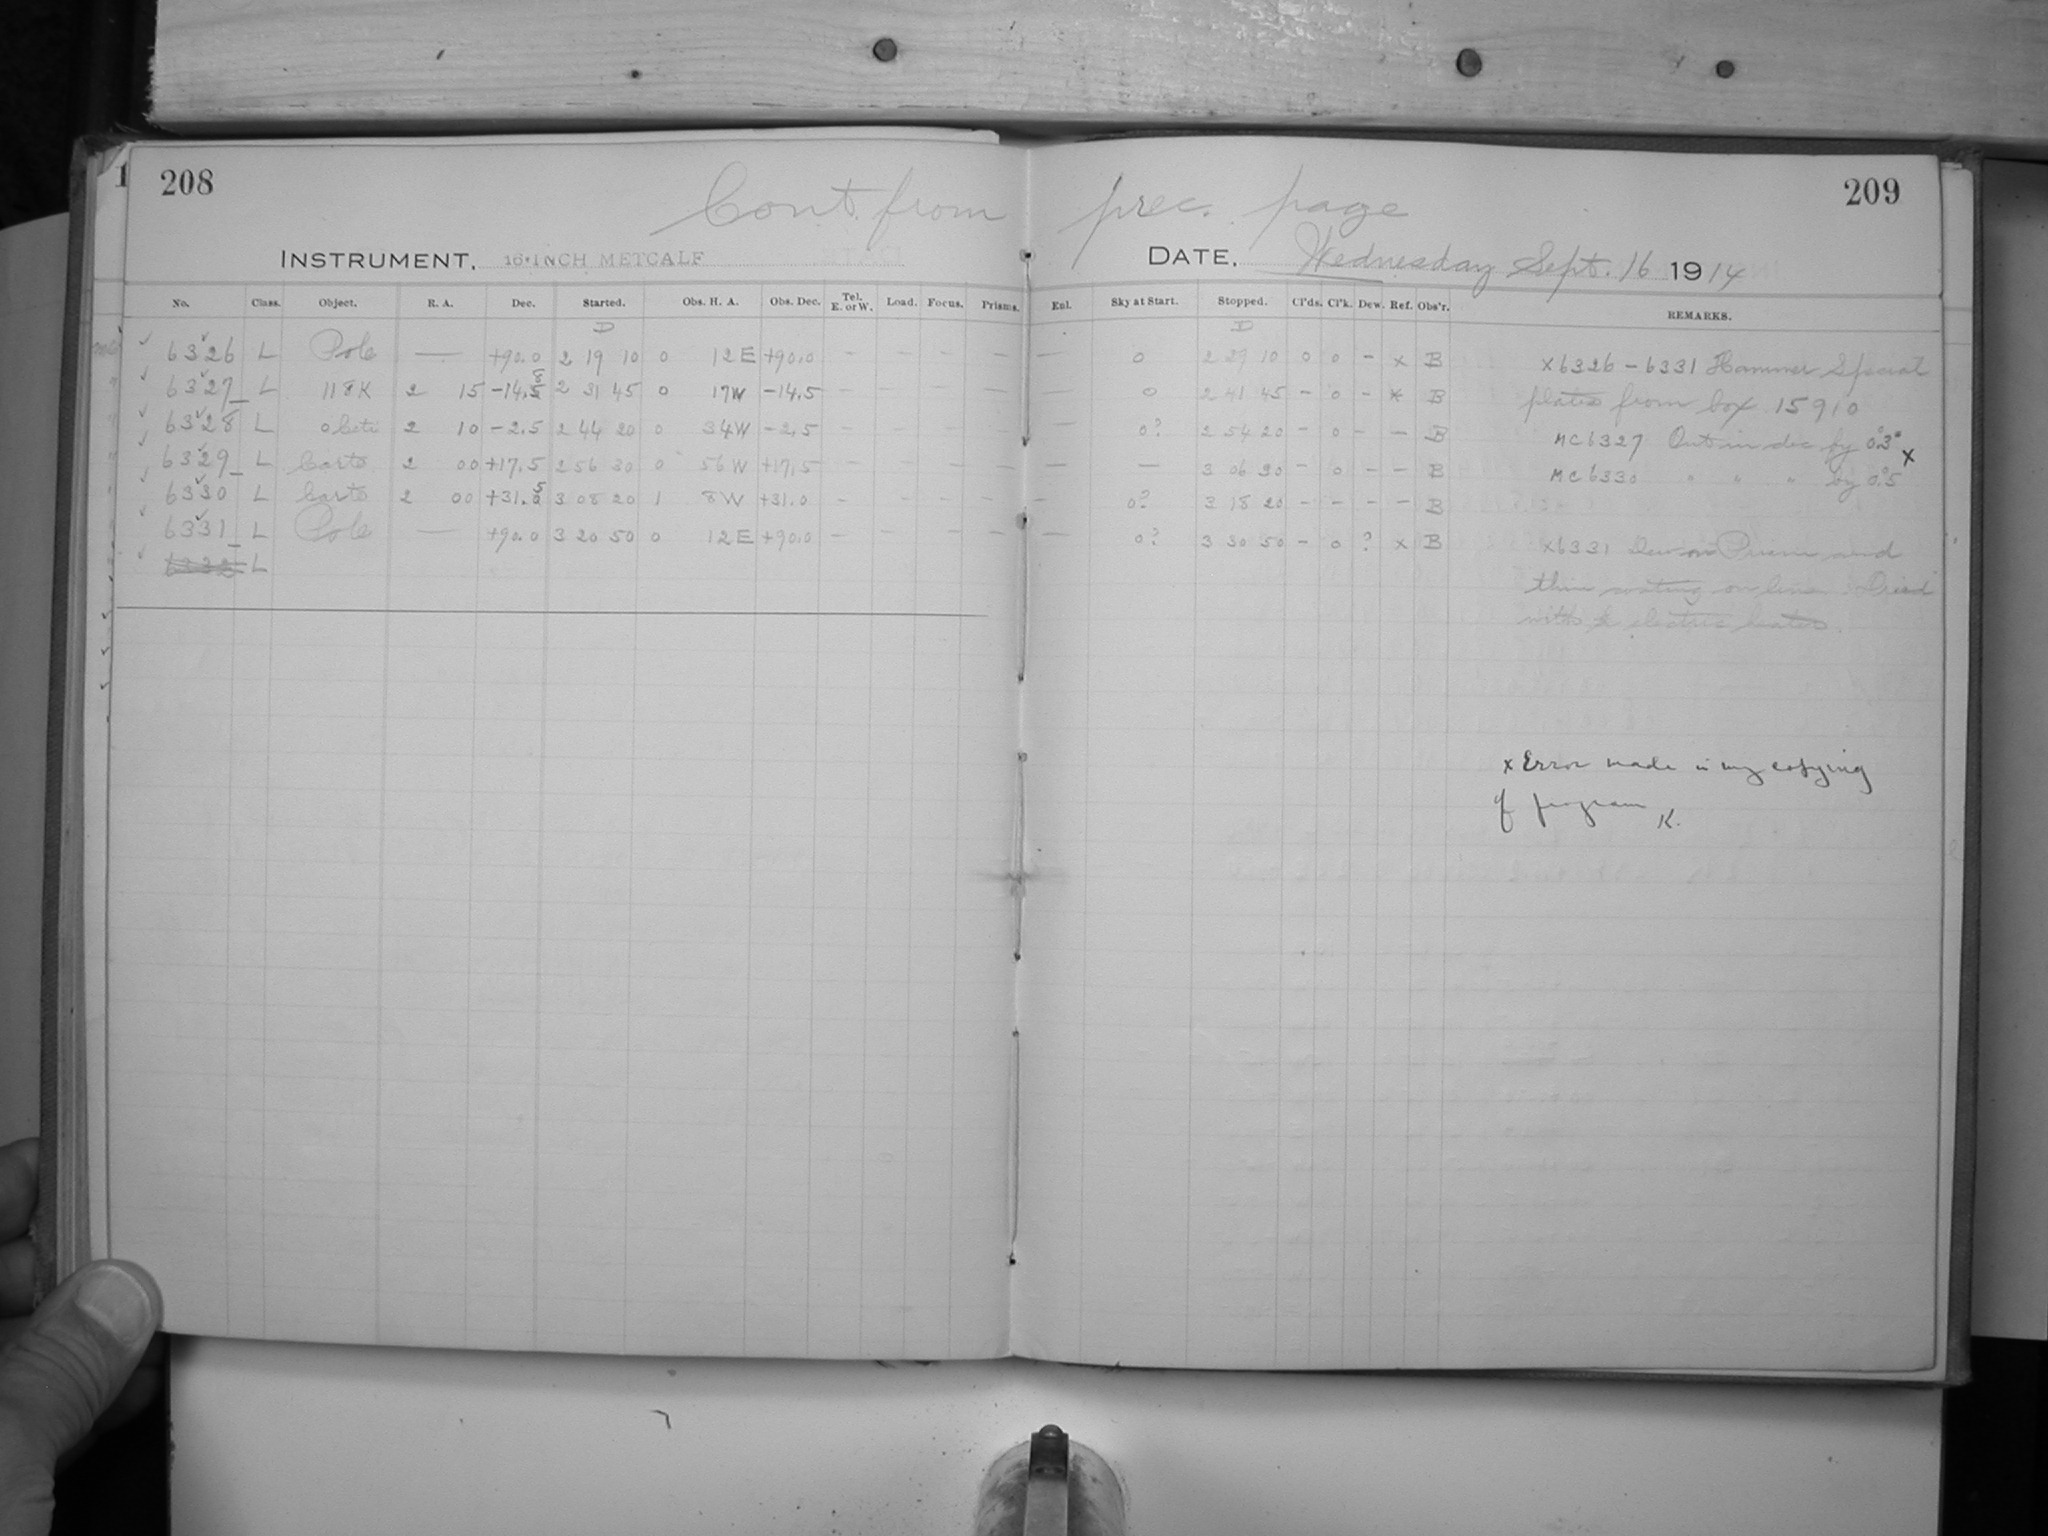 1 208 209
Cont. from prec. page
INSTRUMENT, 16-INCH METCALF DATE, Wednesday Sept. 16 1914
No. Class. Object. R. A. Dec. Started. Obs. H. A. Obs. Dec. Tel. E. or W. Load. Focus. Prisms. Enl. Sky at Start. Stopped. Cl'ds. Cl'k. Dew. Ref. Obs'r. REMARKS.
D D
6326 L Pole — +90.0 2 19 10 0 12 E +90.0 — — — — — 0 2 29 10 0 0 – x B x6326 – 6331 Hammer Special
6327 L 118K 2 15 -14.5 8 2 31 45 0 17W -14.5 — — — — — 0 2 41 45 – 0 – x B plates from box 15910
6328 L o Ceti 2 10 -2.5 2 44 20 0 34W -2.5 — — — — — 0? 2 54 20 – 0 – – B MC6327 Out in dec by 0.°3 x
6329 L Carte 2 00 +17.5 2 56 30 0 56W +17.5 — — — — — — 3 06 30 – 0 – – B MC6330 " " " by 0.°5
6330 L Carte 2 00 +31. 5 3 08 20 1 8W +31.0 — — — — — 0? 3 18 20 – – – – B
6331 L Pole — +90.0 3 20 50 0 12 E +90.0 — — — — — 0? 3 30 50 – 0 ? x B x6331 Dew on Prism and
6332 L
thin coating on lens. Dried
with electric heater.
x Error made in my copying
of program K.